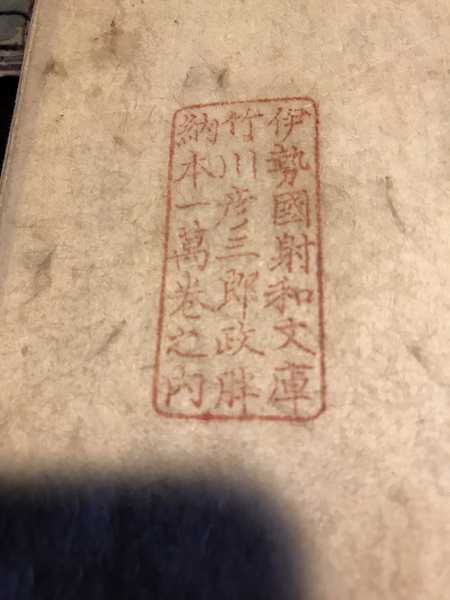 伊勢國射和文庫
竹川彦三郎政胖
納本一萬巻之内